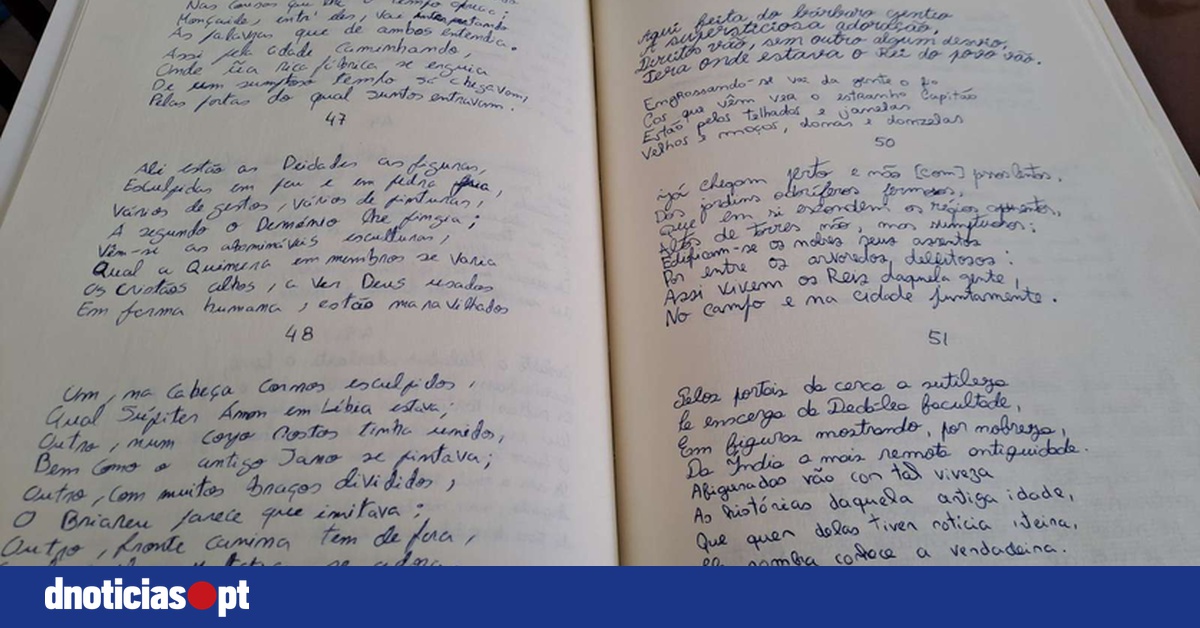 Monçaide, entr' eles, vai interpretando
As palavras que de ambos entendia.
Assi pela cidade caminhando,
Onde ũa rica fábrica se erguia
De um sumptuoso templo já chegavam,
Pelas portas do qual juntos entravam.
47
Ali estão as Deidades as figuras,
Esculpidas em pau e em pedra fria,
Vários de gestos, vários de pinturas,
A segundo o Demónio lhe fingia;
Vêm-se as abomináveis esculturas,
Qual a Quimera em membros se varia
Os cristãos olhos, a ver Deus usados
Em forma humana, estão maravilhados
48
Um, na cabeça cornos esculpidos,
Qual Júpiter Amon em Líbia estava;
Outro, num corpo rostos tinha unidos,
Bem como o antigo Jano se pintava;
Outro, com muitos braços divididos,
O Briareu parece que imitava;
Outro, fronte canina tem de fora,
Aqui feita do bárbaro gentio
A supersticiosa adoração,
Direitos vão, sem outro algum desvio,
Pera onde estava o Rei do povo vão.
Engrossando-se vai da gente o fio
Cos que vêm ver o estranho Capitão
Estão pelos telhados e janelas
Velhos e moços, donas e donzelas
50
Já chegam perto e não [com] passos lentos,
Dos jardins odoríferos fermosos,
Que em si escondem os régios aposentos,
Altos de torres não, mas sumptuosos:
Edificam-se os nobres seus assentos
Por entre os arvoredos, deleitosos:
Assi vivem os Reis daquela gente,
No campo e na cidade juntamente.
51
Pelos portais da cerca a sutileza
Se enxerga da Dedálea facultade,
Em figuras mostrando, por nobreza,
Da Índia a mais remota antiguidade.
Afiguradas vão con tal viveza
As histórias daquela antiga idade,
Que quem delas tiver notícia inteira,
sombra conhece a verdadeira.
dnoticias.pt